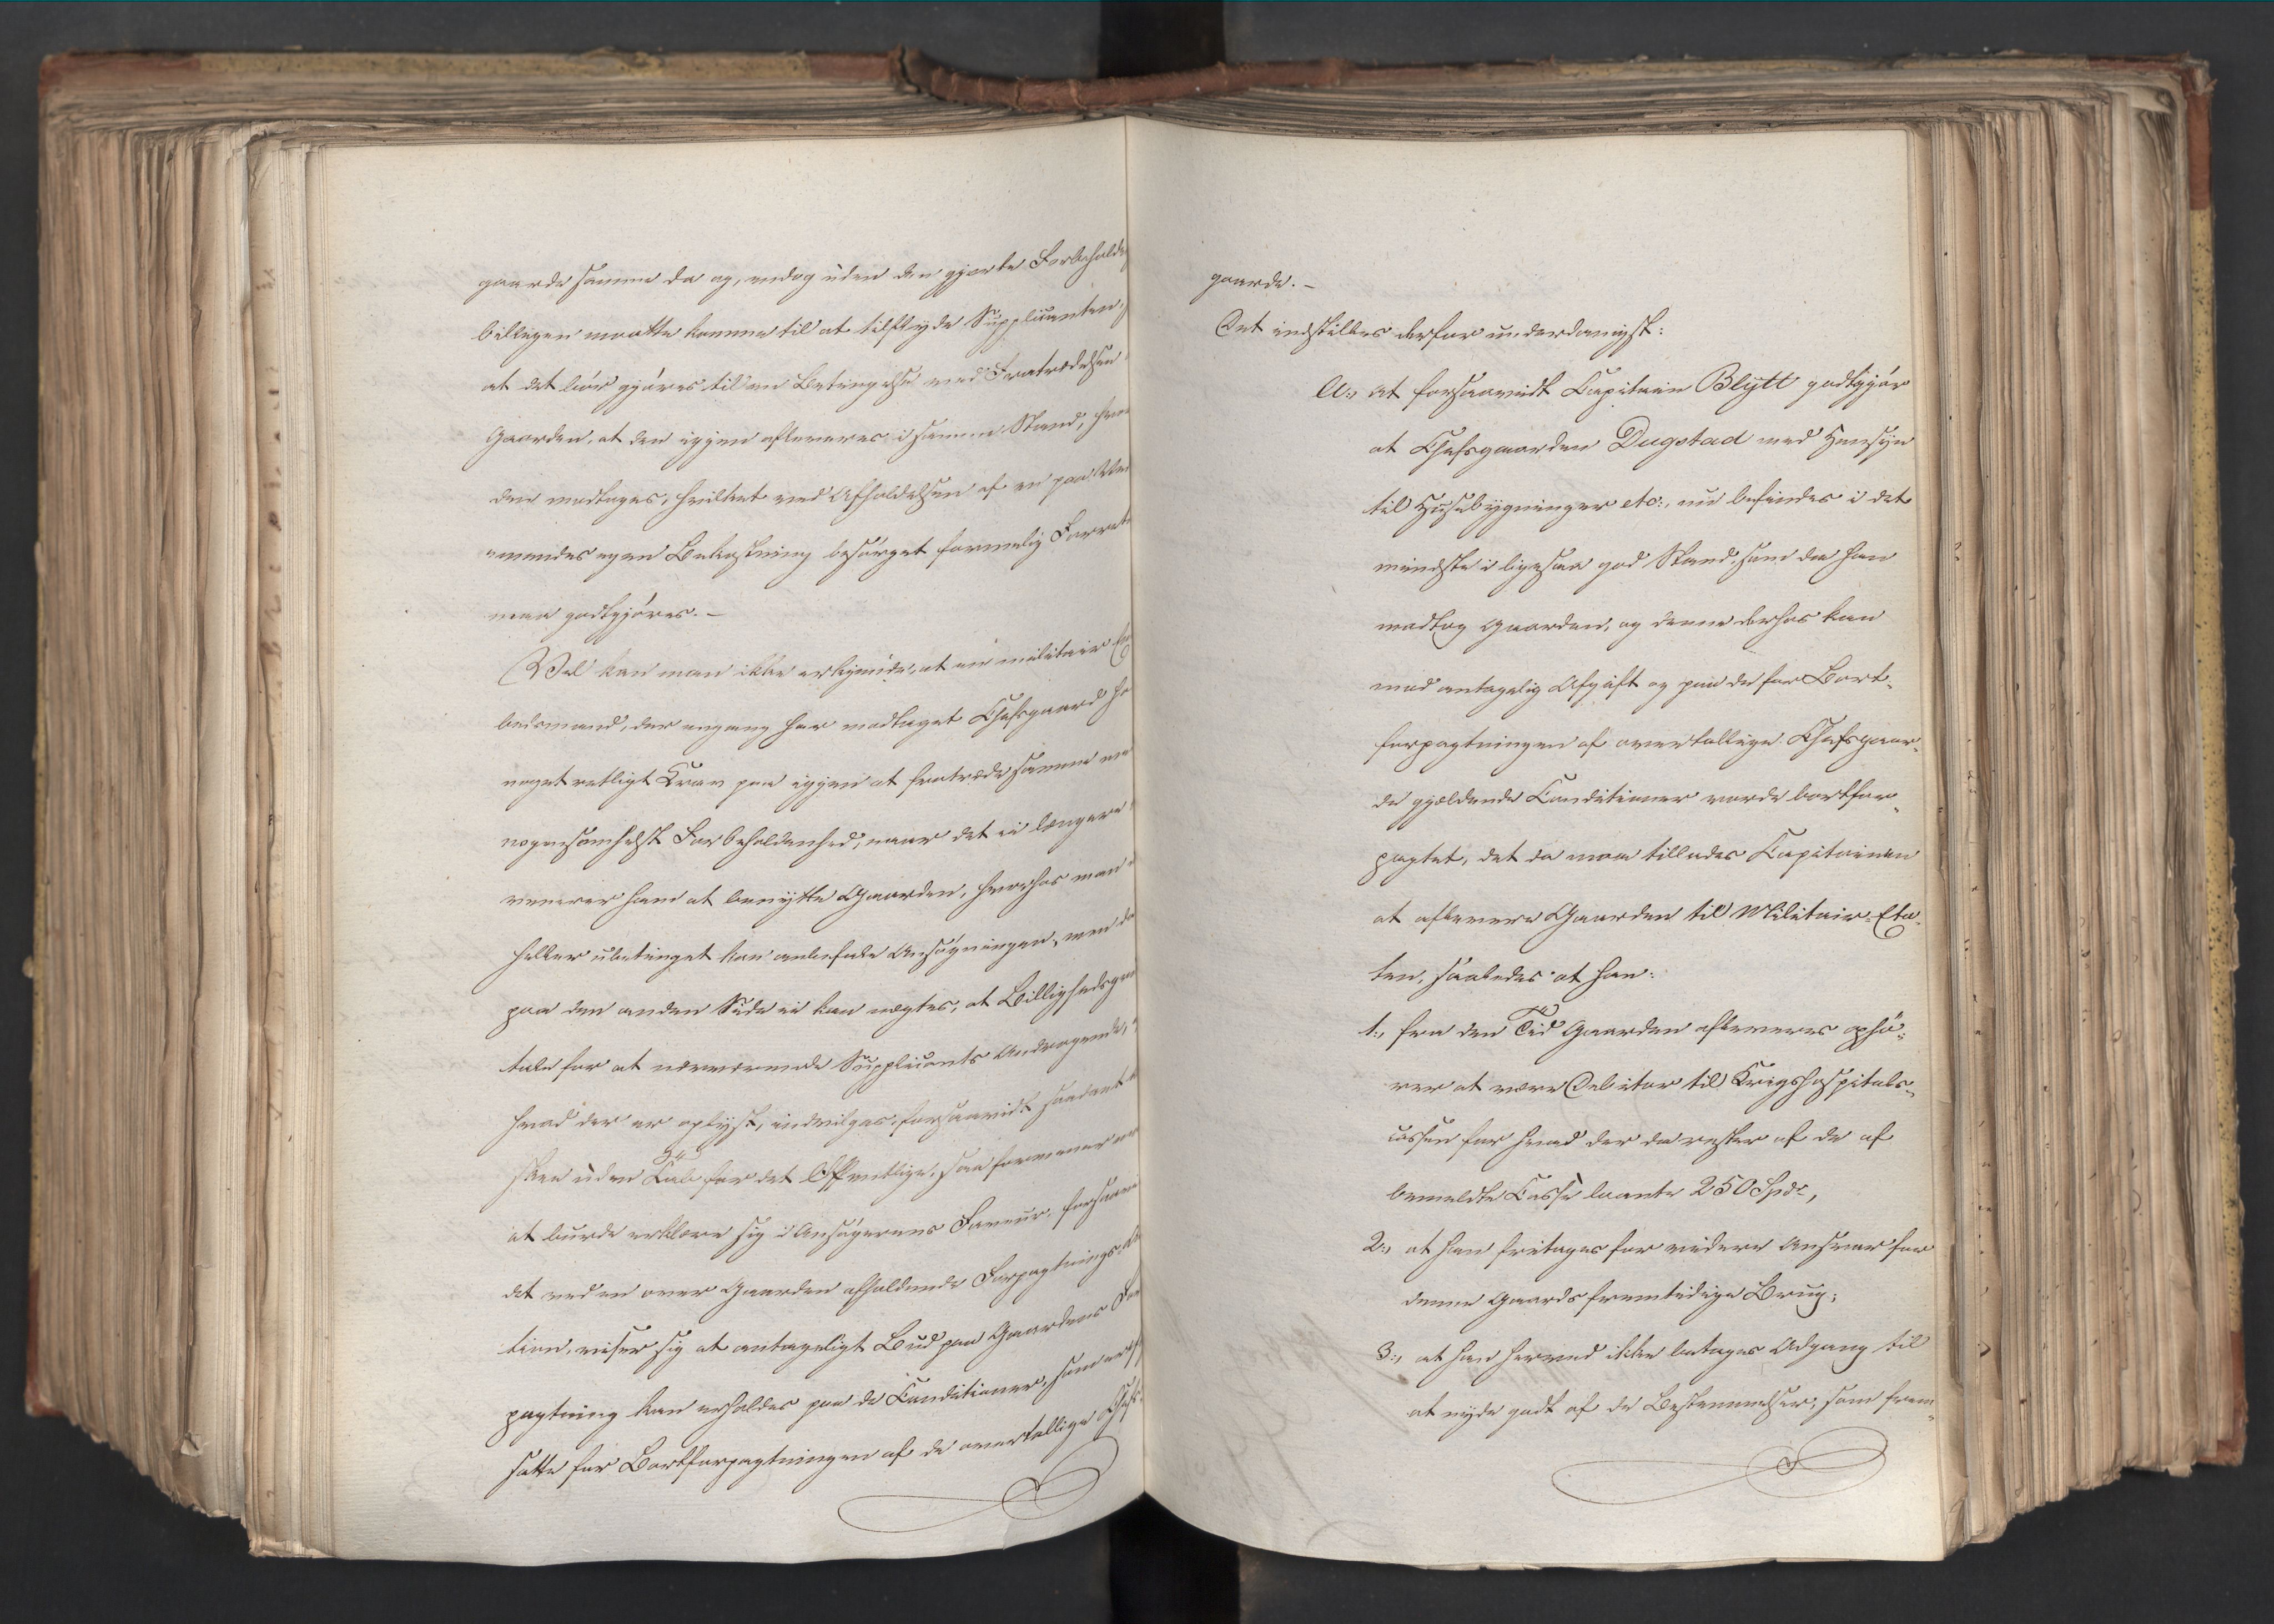 gaarde samme da og, endog uden den gjorte Forbeholde
billigen maatte komme til at tilflyde Supplicanten,
at det bør gjøres til en Betingelse ved Fratrædelsen
Gaarden, at den igjen afleveres i samme Stand, hvor
den modtages, hvilket ved Afholdelsen af en paa
mandes egen Bekostning besørget formelig Forret
maa godtgjøres. –
Vel kan man ikke erkjende, at en militair Em
bedsmand, der engang har modtaget Chefsgaard ha
noget retligt Krav paa igjen at fratræde samme
nogensomhelst Forbeholdenhed, naar det ei længere
convenerer ham at benytte Gaarden, hvorhos man
heller ubetinget kan anbefale Ansøgningen, men da
paa den anden Side ei kan nægtes, at Billighedsgru
tale for at nærværende Supplicants Andragende,
hvad der er oplyst, indvilges, forsaavidt saadant
skee uden Tab for det Offentlige, saa formener man
at burde erklære sig i Ansøgerens Faveur, forsaavi
det ved en over Gaarden afholdende Forpagtnings-Au
tion, viser sig at antageligt Bud paa Gaardens For
pagtning kan erholdes paa de Conditioner, som ere
satte for Bortforpagtningen af de overtallige Chefs-
gaarde. –
Det indstilles derfor underdanigst:
A., at forsaavidt Capitain Blytt godtgjør
at Chefsgaarden Dugstad med Hensyn
til Huusbygninger etc:, nu befindes i det
mindste i ligesaa god Stand, som da han
modtog Gaarden, og denne derhos kan
mod antagelig Afgift og paa de for Bort-
forpagtningen af overtallige Chefsgaar-
de gjældende Conditioner vorde bortfor-
pagtet, det da maa tillades Capitainen
at aflevere Gaarden til Militair-Eta-
ten, saaledes at han:
1., fra den Tid Gaarden afleveres ophø-
rer at være Debitor til Krigshospitals-
cassen for hvad der da rester af de af
bemeldte Casse laante 250 Spd.,
2., at han fritages for videre Ansvar for
denne Gaards fremtidige Brug;
3., at han herved ikke betages Adgang til
at nyde godt af de Bestemmelser, som frem-